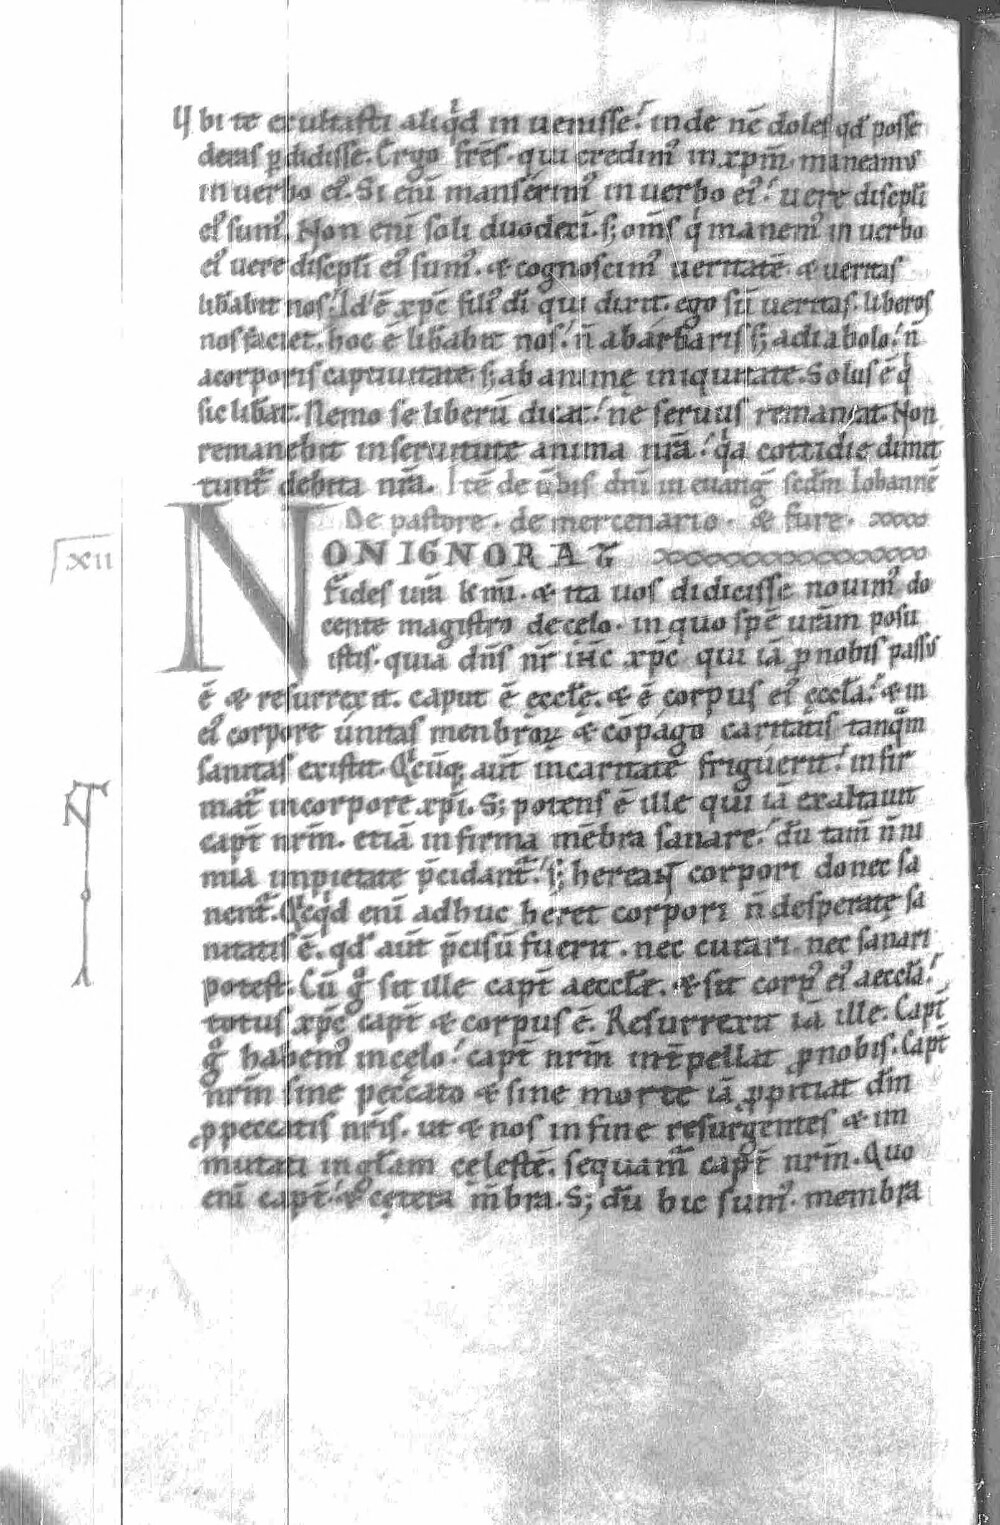 Ubi te exultasti aliqͥd inuenisse.ʼ inde nc̄ doles qd̓ posse
deras ꝑdidisse. Ergo fr̄es. qui credimꝰ in xp̄m. maneamus
in uerbo eiꝰ. Si enī manserimꝰ in uerbo eiꝰ.ʼ uere discipl̄i
eiꝰ sumꝰ. Non enī soli duodeci. sꝫ om̄s qͥ manemꝰ in uerbo
eiꝰ uere discipl̄i eiꝰ sumꝰ. & cognoscimꝰ ueritatē. & ueritas
lib̄abit nos.ʼ Id ē xp̄c filiꝰ dī qui dixit. ego sū ueritas. liberos
nos faciet. hoc ē lib̄abit nos.ʼ n̄ abarbaris sꝫ adiabolo.ʼ n̄
acorporis captiuitate. sꝫ ab animę iniquitate. Solus ē qͥ
sic lib̄at. Nemo se liberū dicat.ʼ ne seruus remaneat. Non
remanebit in seruitute anima nr̄a.ʼ qͥa cottidie dimit
tunt᷑ debita nr̄a. Itē de ūbis dn̄i in euanḡ scd̄m Iohannē
De pastore. de mercenario. & fure.
xii
NON IGNORAT
fides ur̄a km̄i. & ita uos didicisse nouimꝰ do
cente magistro de celo. in quo spē ur̄am posu
istis. quia dn̄s nr̄ ihc̄ xp̄c qui iā ꝓ nobis passus
ē & resurrexit. caput ē eccl̄ę. & ē corpus eiꝰ ęccl̄a.ʼ & in
eiꝰ corpore unitas menbroꝝ & cōpago caritatis tanqͣm
sanitas existit. Qͥcūqꝫ aūt in caritate friguerit.ʼ infir
mat᷑ in corpore xp̄i. Sꝫ potens ē ille qui iā exaltauit
capt̄ nr̄m. etiā infirma mēbra sanare.ʼ dū tam̄ n̄ ni
mia impietate p̄cidant᷑.ʼ sꝫ hereant corpori donec sa
nent᷑. Qͥcqͥd enī adhuc heret corpori n̄ desperatę sa
nitatis ē. qd̓ aūt p̄cisū fuerit. nec curari. nec sanari
potest. Cū gͦ sit ille capt̄ aeccl̄ae. & sit corpꝰ eiꝰ aeccl̄a.ʼ
totus xp̄c capt̄ & corpus ē. Resurrexit iā ille. Capt̄
gͦ habemꝰ in celo.ʼ capt̄ nr̄m int̄pellat ꝓ nobis. Capt̄
nr̄m sine peccato & sine morte iā ꝓpitiat dm̄
ꝓ peccatis nr̄is. ut & nos in fine resurgentes & im
mutati in gl̄am cęlestē. sequam᷑ capt̄ nr̄m. Quo
enī capt̄.ʼ & cętera m̄bra. Sꝫ dū hic sumꝰ. membra